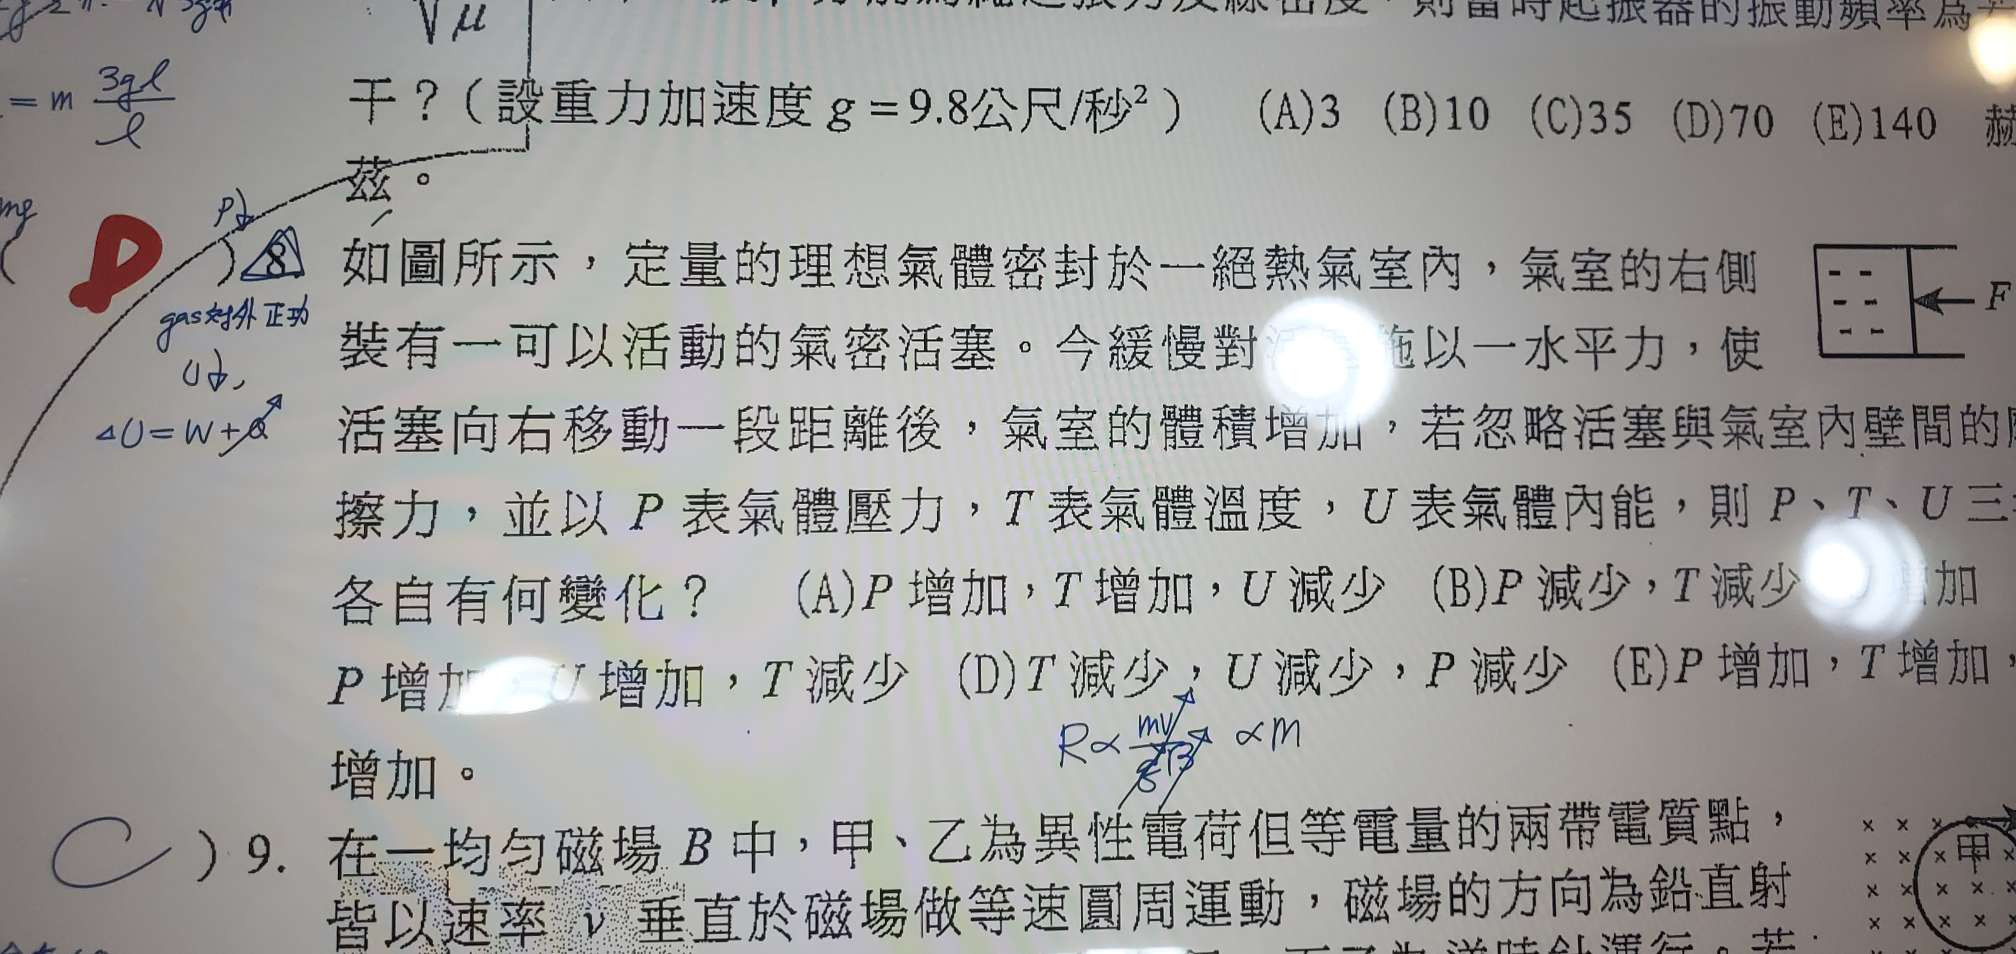 √μ
= m 3gl/l
干？（設重力加速度 g = 9.8公尺/秒² ） (A)3 (B)10 (C)35 (D)70 (E)140 赫
茲。
mg
P↓
D ) 8. 如圖所示，定量的理想氣體密封於一絕熱氣室內，氣室的右側
F
gas對外正功
裝有一可以活動的氣密活塞。今緩慢對 施以一水平力，使
U↓,
ΔU=W+Q
活塞向右移動一段距離後，氣室的體積增加，若忽略活塞與氣室內壁間的
擦力，並以 P 表氣體壓力，T 表氣體溫度，U 表氣體內能，則 P、T、U 三
各自有何變化？ (A)P 增加，T 增加，U 減少 (B)P 減少，T 減少 增加
P 增加，U 增加，T 減少 (D)T 減少，U 減少，P 減少 (E)P 增加，T 增加，
R∝ mv/qB ∝m
增加。
C ) 9. 在一均勻磁場 B 中，甲、乙為異性電荷但等電量的兩帶電質點，
甲
皆以速率 v 垂直於磁場做等速圓周運動，磁場的方向為鉛直射